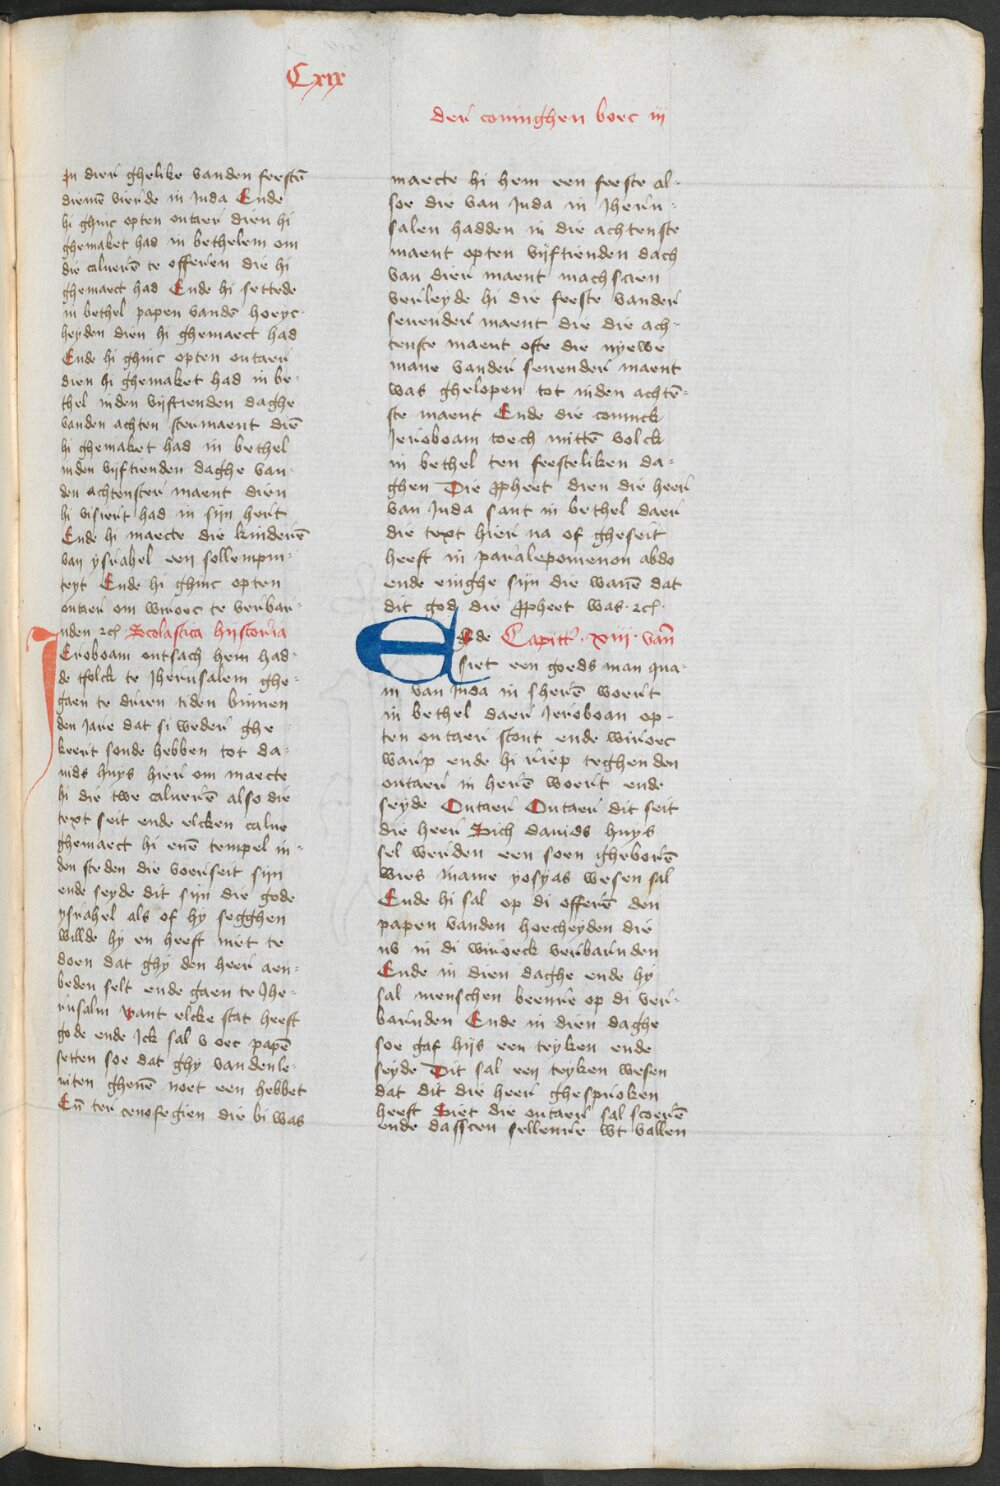 Cxix
der coninghen boec iij
In dier ghelike vanden feestē
diemē vierde in Juda Ende
hi ghinc opten outaer dien hi
ghemaket had in bethelem om
die caluerē te offeren die hi
ghemaect had Ende hi settede
in bethel papen vandē hoeyc-
heyden dien hi ghemaect had
Ende hi ghinc opten outaer
dien hi ghemaket had in be-
thel inden vijftienden daghe
vanden achten stermaent diē
hi ghemaket had in bethel
inden vijftienden daghe van-
den achtenster maent dien
hi visiert had in sijn hert
Ende hi maecte die kinderē
van ysrahel een sollempni-
teyt Ende hi ghinc opten
outaer om wiroec te verbar-
nden etc̄ Scolastica hystoria
Jeroboam ontsach hem had-
de tfolck te Jherusalem ghe-
gaen te drien tiden binnen
den Jare dat si weder ghe-
keert soude hebben tot da-
uids huys hier om maecte
hi die twe caluerē also die
text seit ende elcken calue
ghemaect hi enē tempel in-
den steden die voerseit sijn
ende seyde dit sijn die gode
ysrahel als of hy segghen
willde hy en heeft niet te
doen dat ghy den heer aen-
beden selt ende gaen te Jhe-
rusalm want elcke stat heeft
gode ende Jck sal v oec papē
setten soe dat ghy vanden le-
uiten ghenē noet een hebbet
Eñ ter cenofegien die bi was
maecte hi hem een feeste al-
soe die van Juda in Jheru-
salen hadden in die achtenste
maent opten vijftienden dach
van dier maent machscien
verleyde hi die feeste vander
seuender maent die die ach-
tenste maent ofte die nyewe
mane vander seuender maent
was ghelopen tot inden achtē-
ste maent Ende die coninck
Jeroboam toech mittē volck
in bethel ten feesteliken da-
ghen Die ꝓpheet dien die heer
van Juda sant in bethel daer
die text hier na of gheseit
heeft in paralepomenon abdo
ende einghe sijn die wanē dat
dit god die ꝓpheet was etc̄
Ende Capittˡ xiij van
siet een goeds man qua-
m van Juda in sherē woert
in bethel daer Jeroboan op-
ten outaer stont ende wiroec
warp ende hi riep teghen den
outaer in herē woert ende
seyde Outaer Outaer dit seit
die heer Sich dauids huys
sel werden een soen gheborē
wies name yosyas wesen sal
Ende hi sal op di offerē den
papen vanden hoecheyden die
nv in di wiroeck verbarnden
Ende in dien daghe ende hy
sal menschen beenre op di ver-
barnden Ende in dien daghe
soe gaf hijs een teyken ende
seyde Dit sal een teyken wesen
dat dit die heer ghesproken
heeft Siet die outaer sal scoerē
ende dasscen sellenre wt vallen